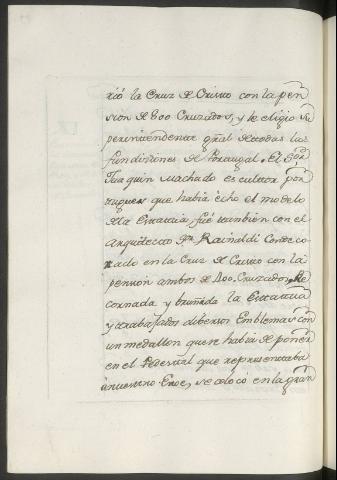 rió la Cruz de Cristo con la pen
sion de 600 Cruzados, y le eligio Su
perintendente gral de todas las
fundiciones de Portugal. El Sor
Juaquin Machado escultor por
tugues que habia echo el modelo
de la Estatua, fué tambien con el
Arquitecto Dn Rainaldi Condeco
rado en la Cruz de Cristo con la
pension ambos de 400 Cruzados. Re
cornada y bruñida la Estatua
y trabajados diversos Emblemas con
un medallon que se habia de poner
en el Pedestal que representaba
à nuestro Eroe, se colocó en la gran